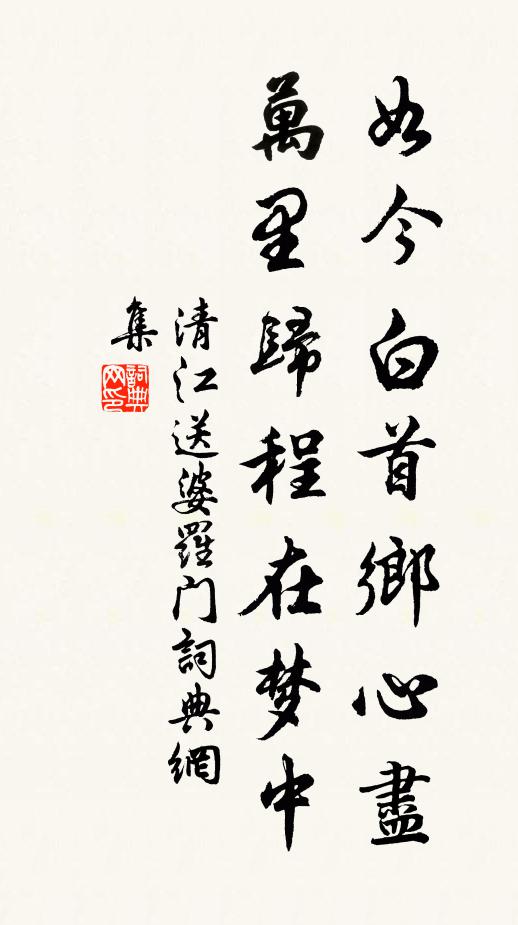 如今白首鄉心盡
萬里歸程在梦中
清江送婆羅门詞典網
集
詞典网印